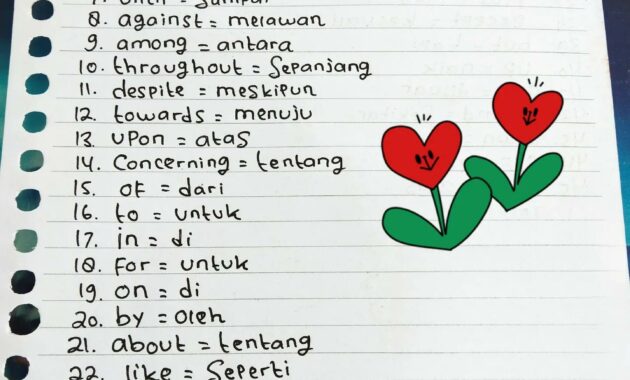 7. until = sampai
8. against = melawan
9. among = antara
10. throughout = Sepanjang
11. despite = meskipun
12. towards = menuju
13. upon = atas
14. Concerning = tentang
15. of = dari
16. to = untuk
17. in = di
18. For = untuk
19. on = di
20. by = oleh
21. about = tentang
22. like = Seperti